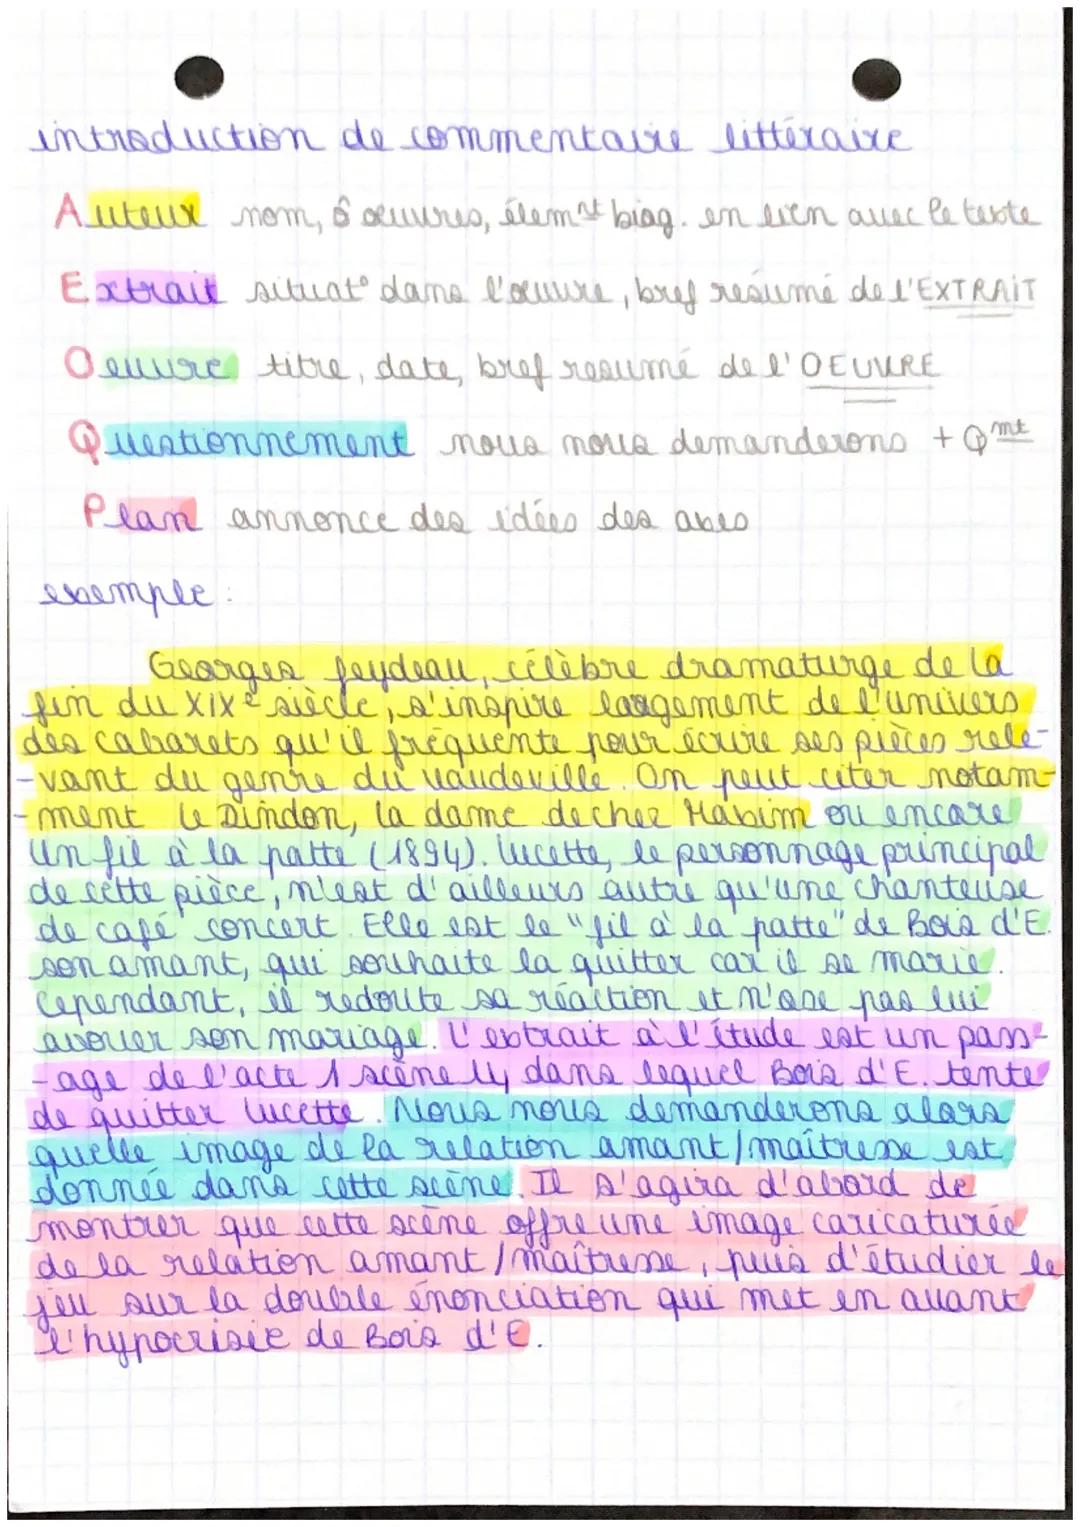 introduction de commentaire littéraire
Auteur nom, 3 œuvres, élemnt biog. en lien avec le texte
Extrait situat° dans l'œuvre, bref résumé de l'EXTRAIT
Oeuvre titre, date, bref resumé de l'OEUVRE
Questionnement nous nous demanderons + Qmt
Plan annonce des idées des axes
exemple :
Georges feydeau, célèbre dramaturge de la
fin du XIXe siècle, s'inspire largement de l'univers
des cabarets qu'il fréquente pour écrire ses pièces rele-
-vant du genre du vaudeville. On peut citer notam-
-ment le Dindon, la dame de chez Maxim ou encore
Un fil à la patte (1894). Lucette, le personnage principal
de cette pièce, n'est d'ailleurs autre qu'une chanteuse
de café concert. Elle est le "fil à la patte" de Bois d'E.
son amant, qui souhaite la quitter car il se marie.
Cependant, il redoute sa réaction et n'ose pas lui
avouer son mariage. L'extrait à l'étude est un pass-
-age de l'acte 1 scène 4, dans lequel Bois d'E. tente
de quitter Lucette. Nous nous demanderons alors
quelle image de la relation amant/maîtresse est
donnée dans cette scène. Il s'agira d'abord de
montrer que cette scène offre une image caricaturée
de la relation amant/maîtresse, puis d'étudier le
jeu sur la double énonciation qui met en avant
l'hypocrisie de Bois d'E.